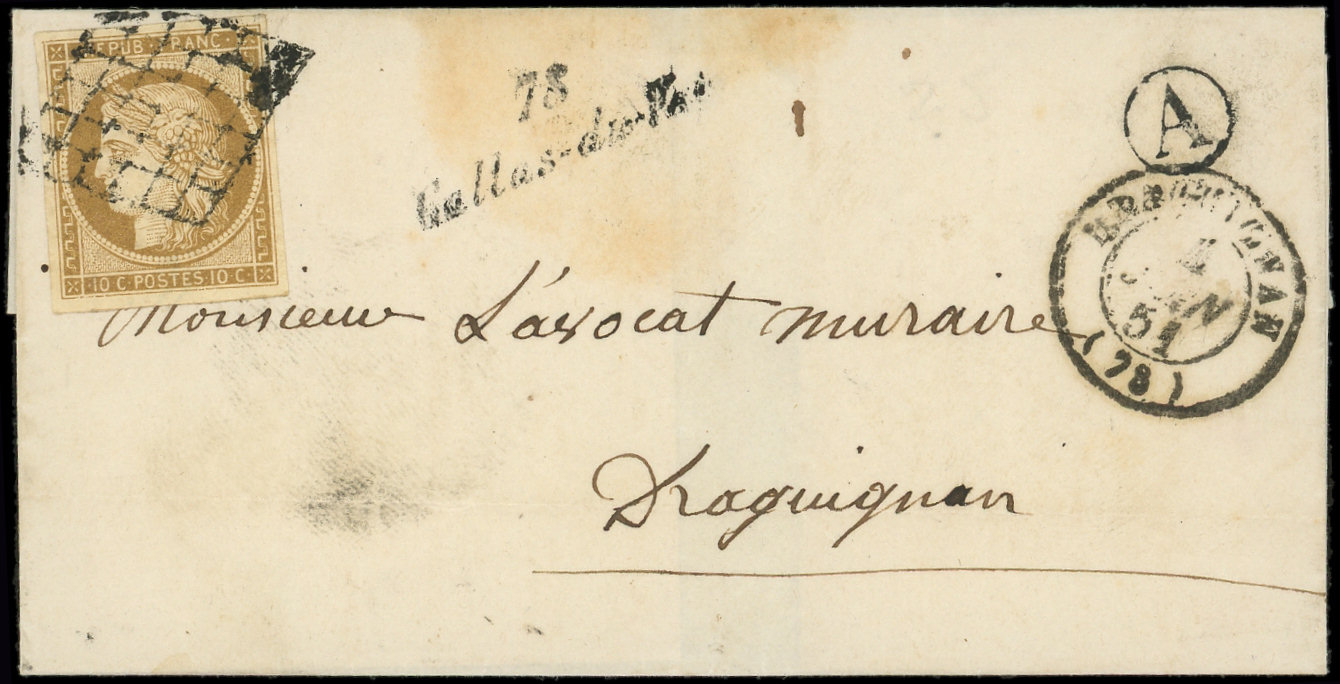 REPUB·FRANC
10 C·POSTES·10 C
78
Callas-du-Var
A
DRAGUIGNAN
51
(78)
Monsieur L'avocat muraire
Draguignan